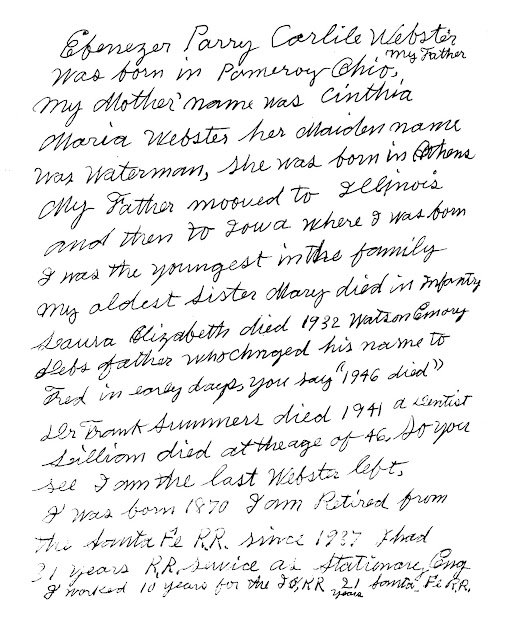 Ebenezer Parry Carlile Webster
my Father
was born in Pomeroy Ohio,
my Mother' name was Cinthia
Maria Webster her Maiden name
was Waterman, she was born in Athens
My Father mooved to Illinois
and then to Iowa where I was born
I was the youngest in the family
my aldest sister Mary died in Infantry
Laura Elizabeth died 1932 Watson Emory
Debs father who chnged his name to
Fred in early days, you say "1946 died"
Dr Frank Summers died 1941 a Dentist
Lilliom died at the age of 46. So you
see I am the last Webster left,
I was born 1870 I am Retired from
the Santa Fe R.R. since 1937 I had
21 years R.R. service as Stationary Eng
I worked 10 years for the RR 21 years Santa Fe R.R.